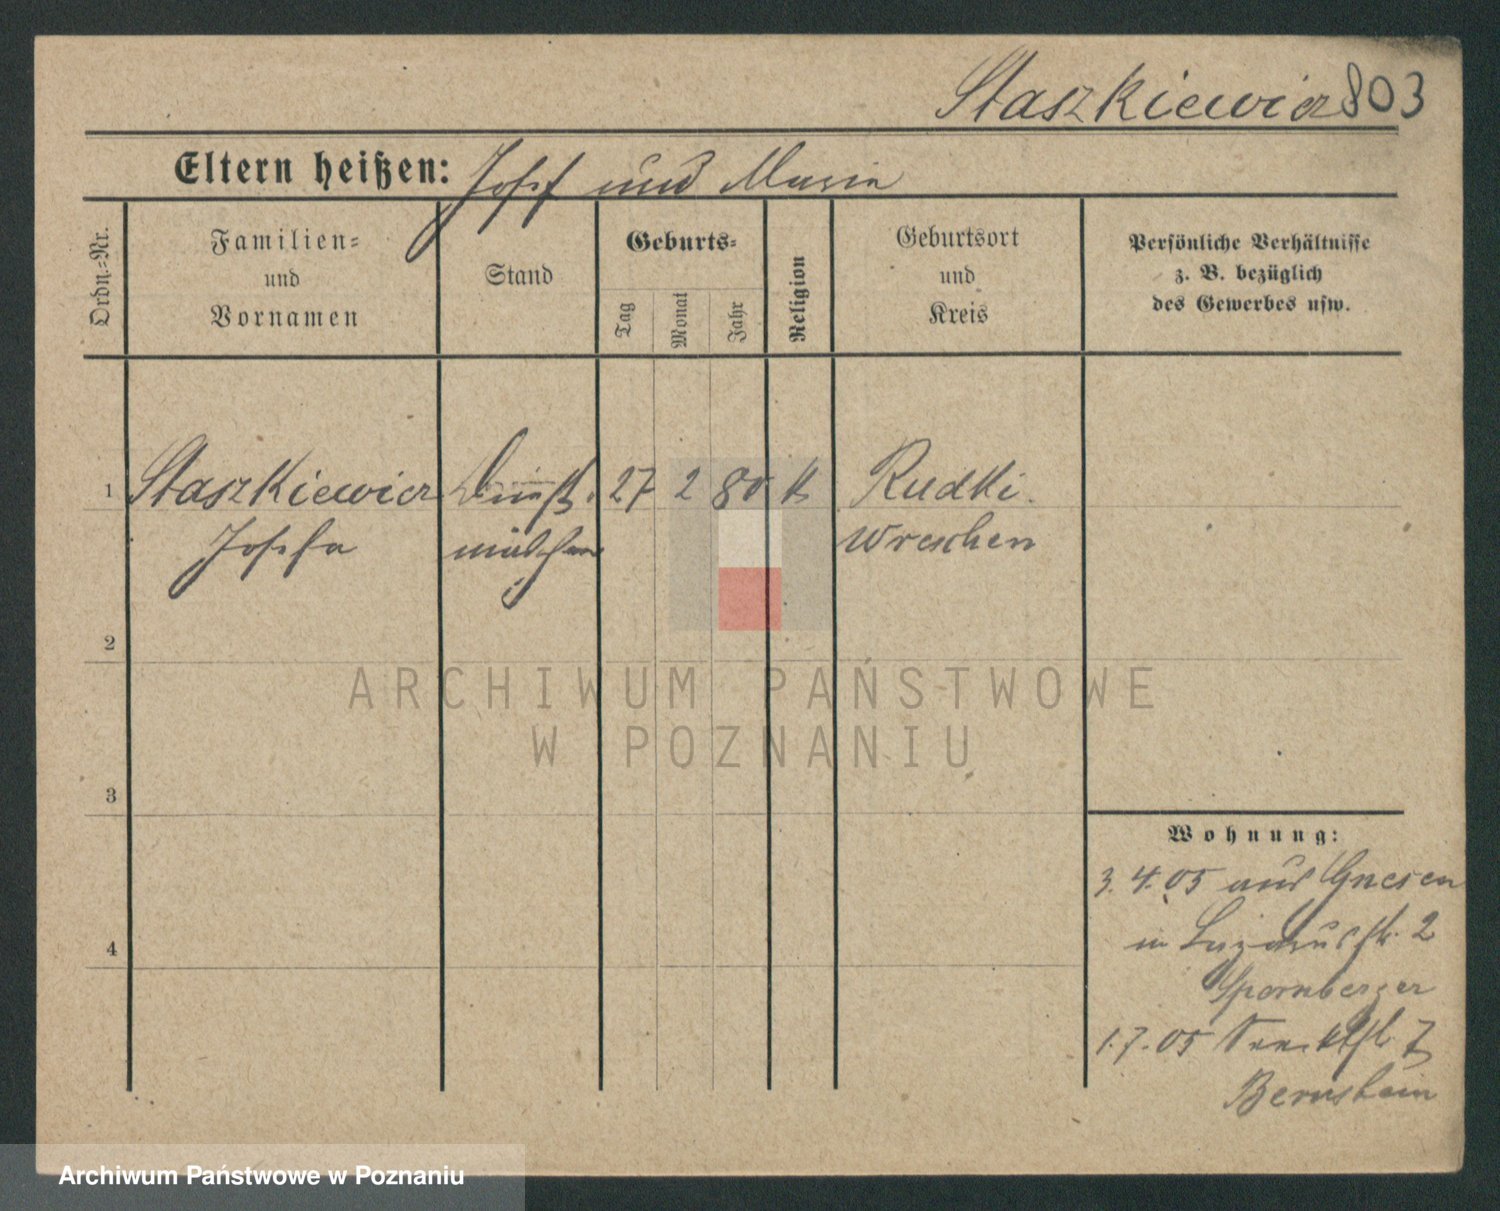 Staszkiewicz 803
Eltern heißen: Josef und Maria
Ordn.-Nr.
Familien-
und
Vornamen
Stand
Geburts-
Tag
Monat
Jahr
Religion
Geburtsort
und
Kreis
Persönliche Verhältnisse
z. B. bezüglich
des Gewerbes usw.
1 Staszkiewicz Dienst- 27 2 80 k Rudki.
Josefa mädchen Wreschen
2
3
4
Wohnung:
3.4.05 aus Gnesen
in 2
Spornberger
1.7.05 7
Bernstein
ARCHIWUM PAŃSTWOWE
W POZNANIU
Archiwum Państwowe w Poznaniu